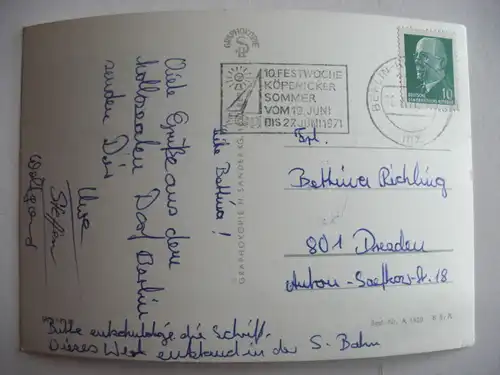 GRAPHOKOPIE
10. FESTWOCHE
KÖPENICKER
SOMMER
VOM 19. JUNI
BIS 27. JUNI 1971
BERLIN
DEUTSCHE
DEMOKRATISCHE REPUBLIK
10
Liebe Bettina!
Viele Grüße aus dem
Dorf Berlin
senden Dir
Uwe
Stefan
Wolfgang
GRAPHOKOPIE H. SANDER KG
Frl.
Bettina Richling
801 Dresden
Anton-Saefkow-Str. 18
Bitte entschuldige die Schrift.
Dieses Werk entstand in der S-Bahn